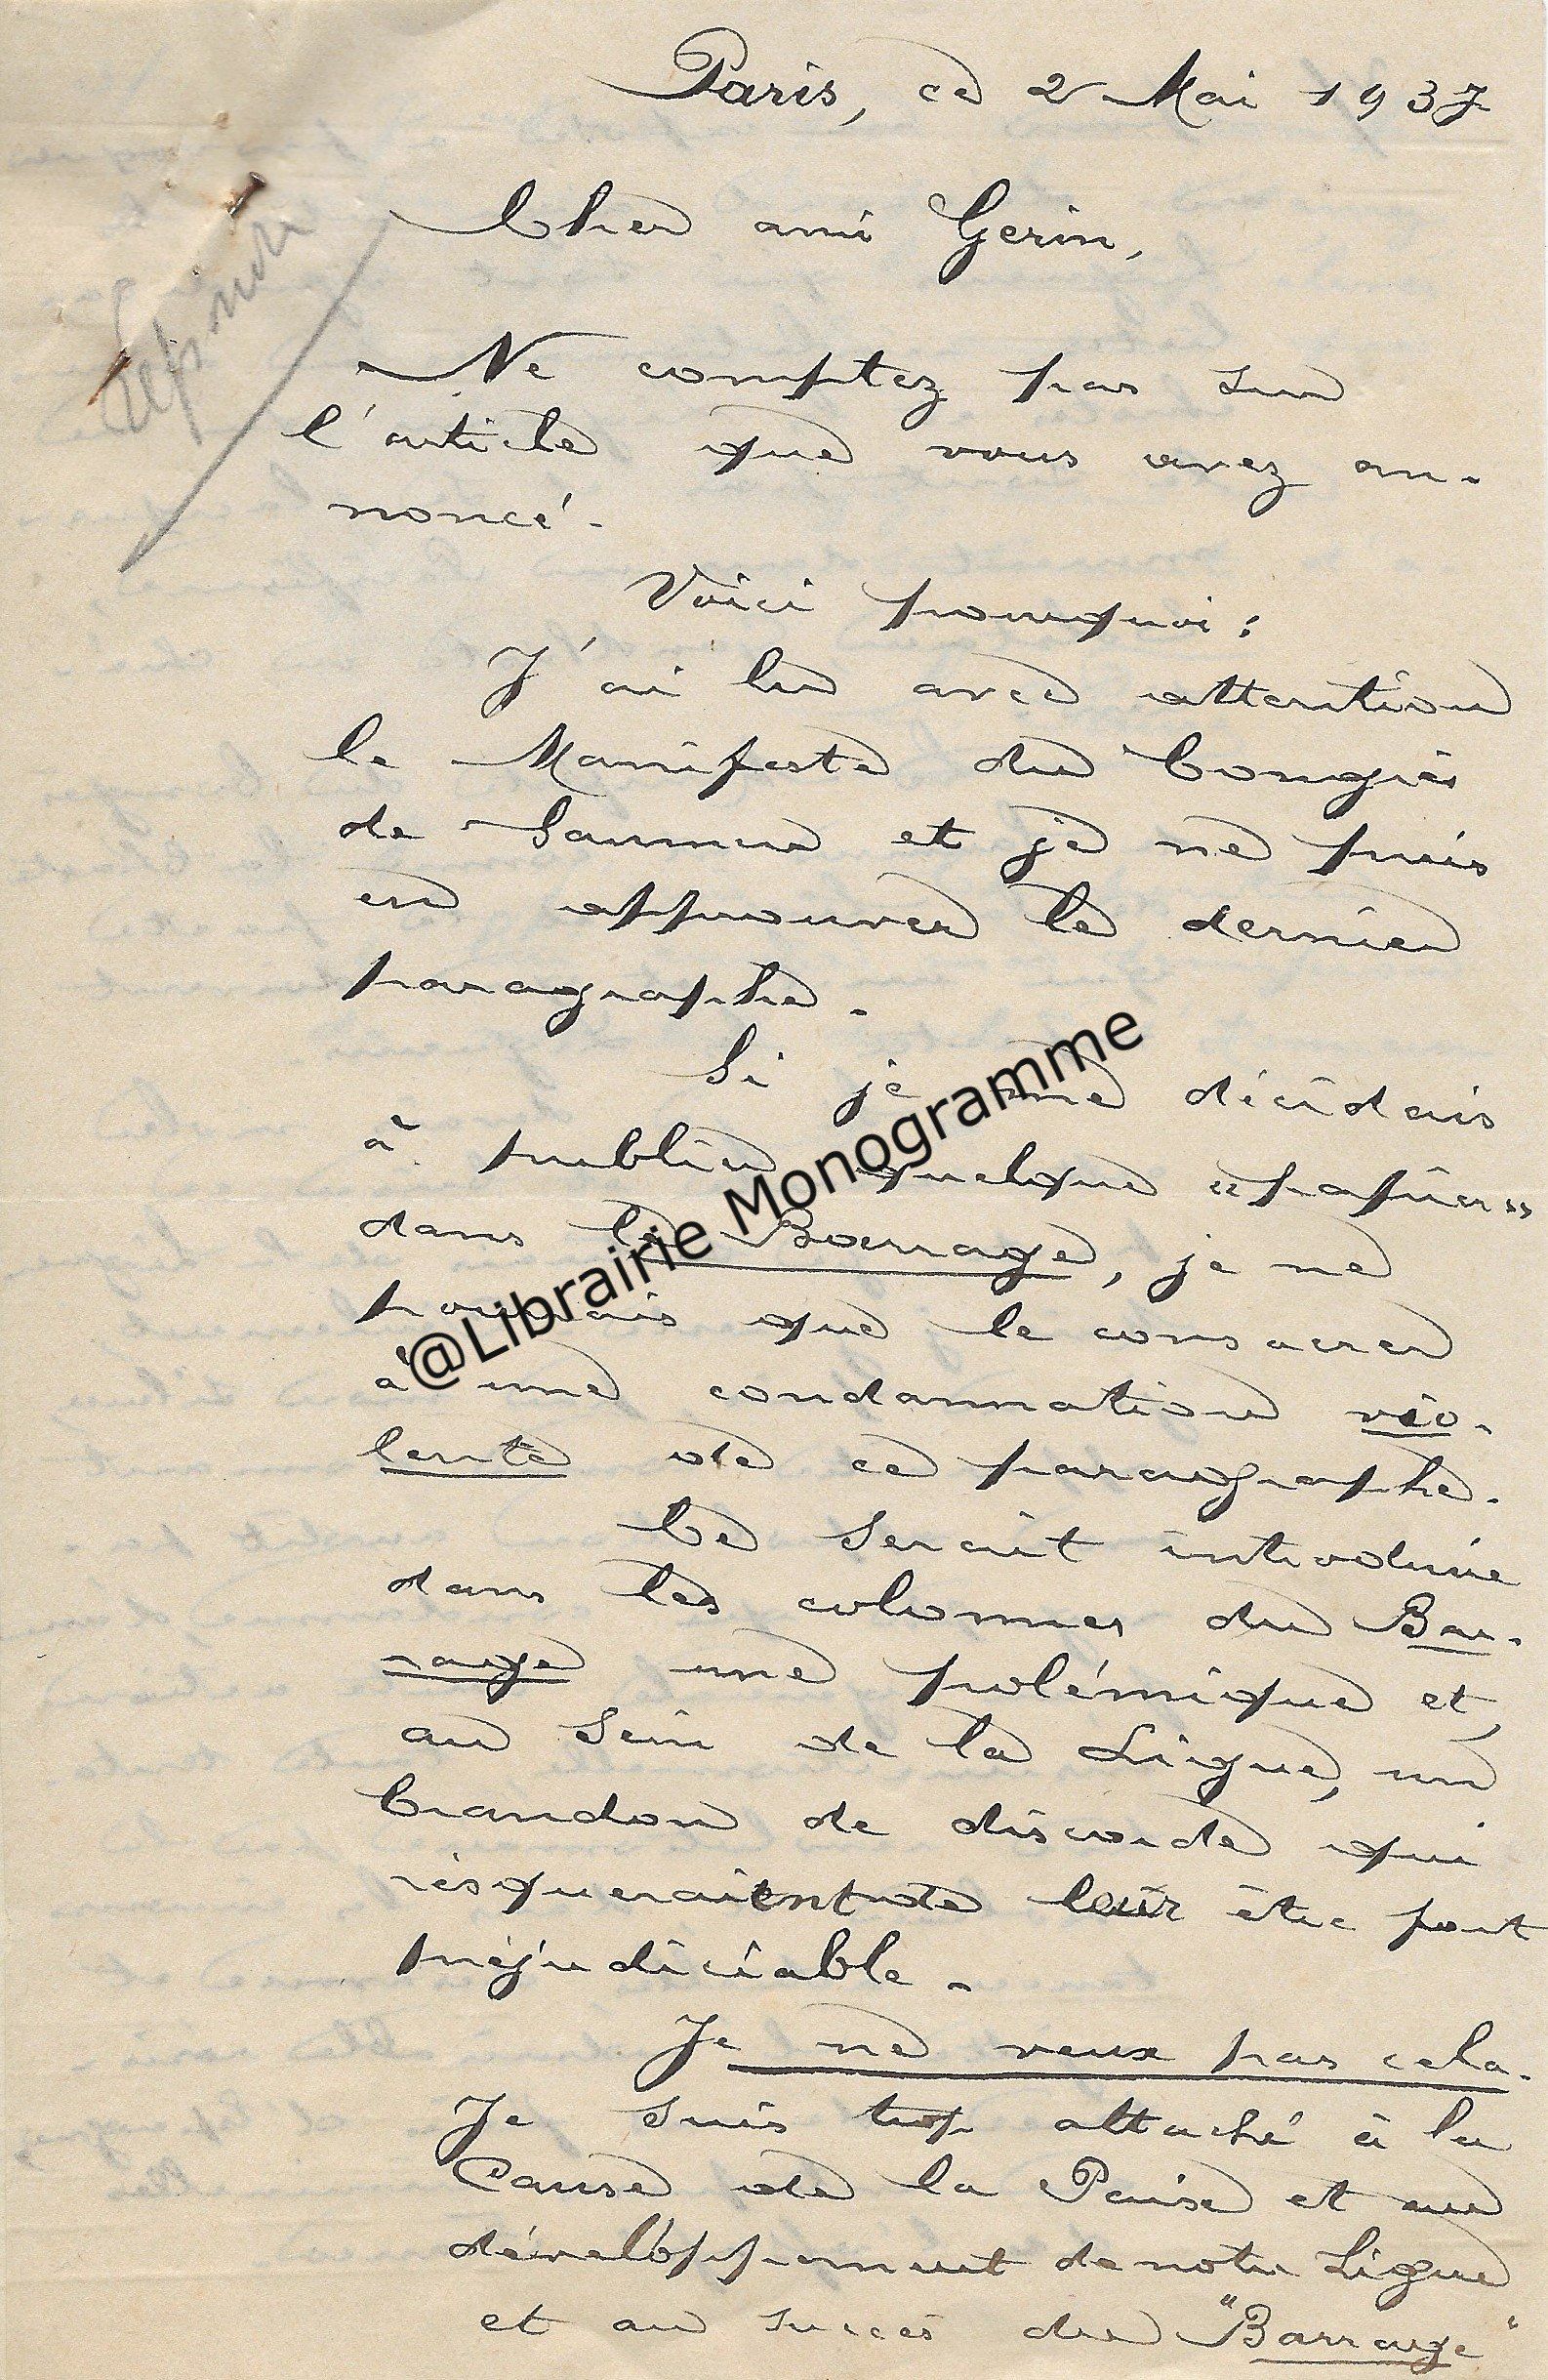 Paris, ce 2 Mai 1937
Cher ami Gerin,
Ne comptez pas sur
l'article que vous avez an-
noncé.
Voici pourquoi :
J'ai lu avec attention
le Manifeste du Congrès
de Saumur et je ne puis
en approuver le dernier
paragraphe.
Si je me décidais
à publier quelque « papier »
dans le Barrage, je ne
pourrais que le consacrer
à une condamnation vio-
lente de ce paragraphe.
Ce serait introduire
dans les colonnes du Bar-
rage une polémique et,
au sein de la Ligue, un
brandon de discorde qui
risqueraient de leur être fort
préjudiciable.
Je ne veux pas cela.
Je suis trop attaché à la
Cause de la Paix et au
développement de notre Ligue
et au succès du "Barrage"
@Librairie Monogramme